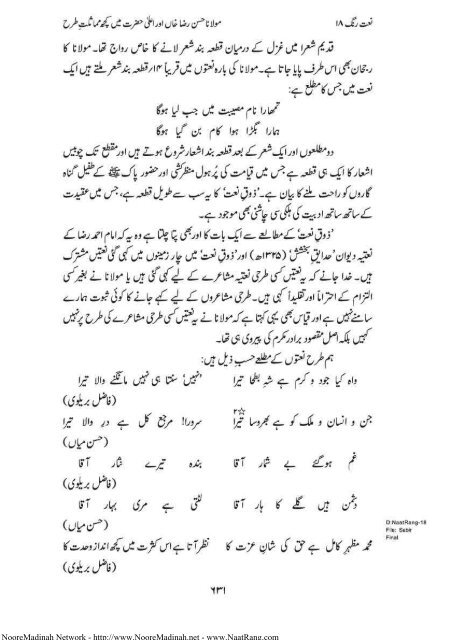 نعت رنگ ۱۸
مولانا حسن رضا خاں اور اعلیٰ حضرت میں کچھ مماثلتِ طرح
قدیم شعرا میں غزل کے درمیان قطعہ بند شعر لانے کا خاص رواج تھا۔ مولانا کا
رجحان بھی اس طرف پایا جاتا ہے۔ مولانا کی بارہ نعتوں میں قریباً ۱۴؍ قطعہ بند شعر ملتے ہیں ایک
نعت میں جس کا مطلع ہے:
تمھارا نام مصیبت میں جب لیا ہوگا
ہمارا بگڑا ہوا کام بن گیا ہوگا
دو مطلعوں اور ایک شعر کے بعد قطعہ بند اشعار شروع ہوتے ہیں اور مقطع تک چوبیس
اشعار کا ایک ہی قطعہ ہے جس میں قیامت کی پُرہول منظرکشی اور حضور پاک ﷺ کے طفیل گناہ
گاروں کو راحت ملنے کا بیان ہے۔ ’ذوقِ نعت‘ کا یہ سب سے طویل قطعہ ہے، جس میں عقیدت
کے ساتھ ساتھ ادبیت کی ہلکی سی چاشنی بھی موجود ہے۔
’ذوقِ نعت‘ کے مطالعے سے ایک بات کا اور بھی پتا چلتا ہے وہ یہ کہ امام احمد رضا کے
نعتیہ دیوان ’حدائقِ بخشش‘ (۱۳۲۵ھ) اور ’ذوقِ نعت‘ میں چار زمینوں میں کہی گئی نعتیں مشترک
ہیں۔ خدا جانے کہ یہ نعتیں کسی طرحی نعتیہ مشاعرے کے لیے کہی گئی ہیں یا مولانا نے بغیر کسی
التزام کے احتراماً اور تقلیداً کہی ہیں۔ طرحی مشاعروں کے لیے کہے جانے کا کوئی ثبوت ہمارے
سامنے نہیں ہے اور قیاس بھی یہی کہتا ہے کہ مولانا نے یہ نعتیں کسی طرحی مشاعرے کی طرح پر نہیں
کہیں بلکہ اصل مقصود برادرِ مکرم کی پیروی ہی تھا۔
ہم طرح نعتوں کے مطلعے حسبِ ذیل ہیں:
واہ کیا جود و کرم ہے شہِ بطحا تیرا ’نہیں‘ سنتا ہی نہیں مانگنے والا تیرا
(فاضل بریلوی)
جن و انسان و ملک کو ہے بھروسا تیرا☆۲ سرورا! مرجعِ کل ہے درِ والا تیرا
(حسن میاں)
غم ہوگئے بے شمار آقا بندہ تیرے نثار آقا
(فاضل بریلوی)
دشمن ہیں گلے کا ہار آقا لٹتی ہے مری بہار آقا
(حسن میاں)
محمد مظہرِ کامل ہے حق کی شانِ عزت کا نظر آتا ہے اس کثرت میں کچھ انداز وحدت کا
(فاضل بریلوی)
D:NaatRang-18
File: Sabir
Final
۶۳۱
NooreMadinah Network - http://www.NooreMadinah.net - www.NaatRang.com